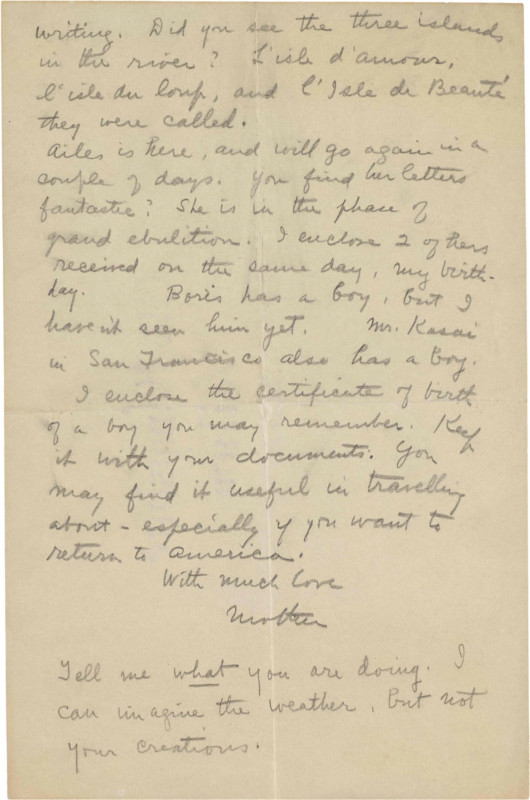 writing. Did you see the three islands
in the river? L'isle d'amour,
l'isle du loup, and l'Isle de Beauté
they were called.
Ailes is here, and will go again in a
couple of days. You find her letters
fantastic? She is in the phase of
grand ebulition. I enclose 2 of hers
received on the same day, my birth-
day. Boris has a boy, but I
haven't seen him yet. Mr. Kasai
in San Francisco also has a boy.
I enclose the certificate of birth
of a boy you may remember. Keep
it with your documents. You
may find it useful in travelling
about - especially if you want to
return to America.
With much love
Mother
Tell me what you are doing. I
can imagine the weather, but not
your creations.